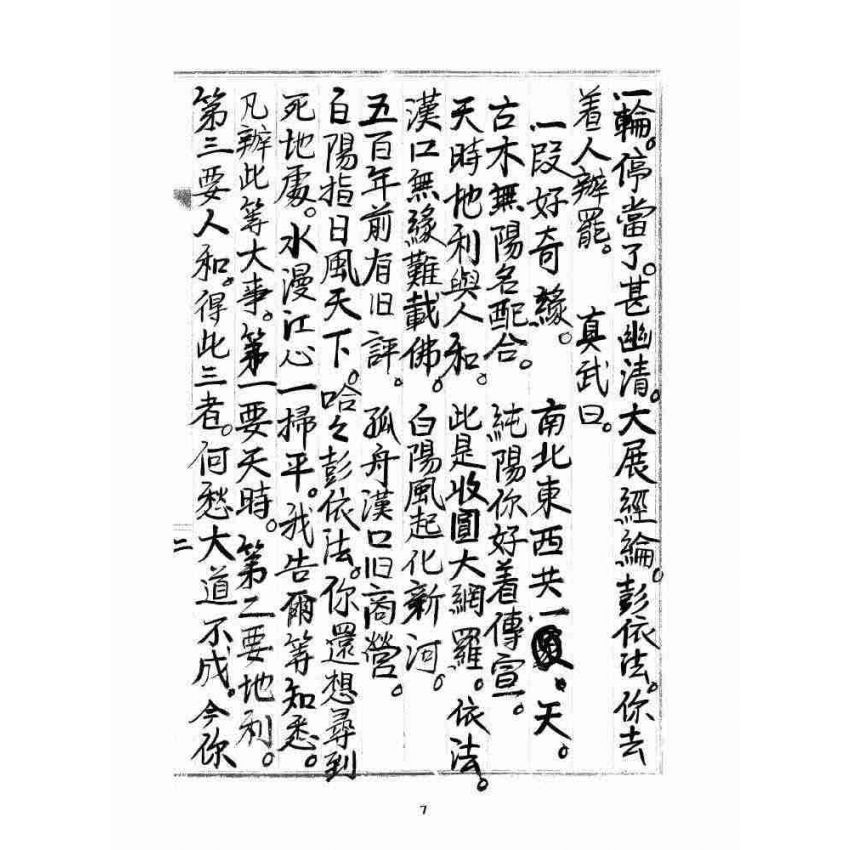 一輪。停當了。甚幽清。大展經綸。彭依法。你去
着人辦罷。　真武曰。
一段好奇緣。　南北東西共一。天。
古木無陽名配合。　純陽你好着傳宣。
天時地利與人和。　此是收圓大網羅。依法。
漢口無緣難載佛。　白陽風起化新河。
五百年前有旧評。　孤舟漢口旧商營。
白陽指日風天下。哈々彭依法。你還想尋到
死地處。水漫江心一掃平。我告爾等知悉。
凡辦此等大事。第一要天時。第二要地利。
第三要人和。得此三者。何愁大道不成。今你
二
7